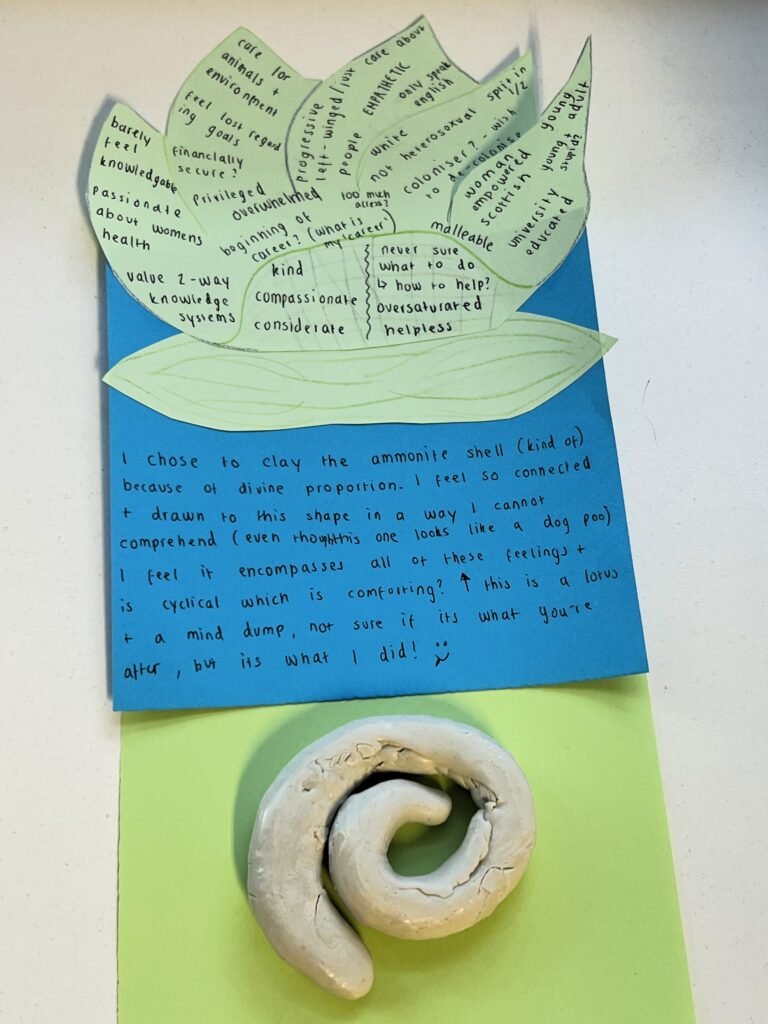 barely
feel
knowledgable
passionate
about womens
health
value 2-way
knowledge
systems
care for
animals +
environment
feel lost regard
ing goals
financially
secure?
privileged
overwhelmed
beginning of
career? (what is
my career)
progressive
left-winged/just
people EMPATHETIC
care about
only speak
english
too much
access?
white
not heterosoxual
split in
1/2
coloniser? - wish
to de-colonise
malleable
woman
empowered
scottish
young
young + adult
stupid?
university
educated
kind
compassionate
considerate
never sure
what to do
↳ how to help?
oversaturated
helpless
I chose to clay the ammonite shell (kind of)
because of divine proportion. I feel so connected
+ drawn to this shape in a way I cannot
comprehend (even thoughthis one looks like a dog poo)
I feel it encompasses all of these feelings +
is cyclical which is comforting? ↑ this is a lotus
+ a mind dump, not sure if its what you're
after, but its what I did! :)